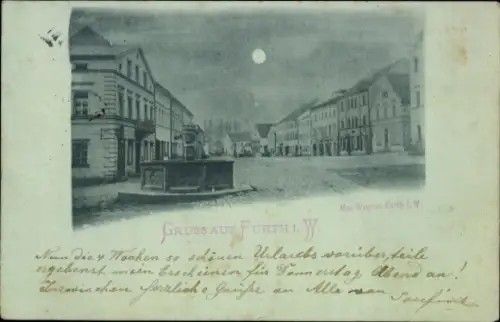 GRUSS AUS FURTH I. W.
Max Wagner, Furth i. W.
Nun die 4 Wochen so schönen Urlaubs vorüber, teile
ergebenst mein Erscheinen für Donnerstag Abend an!
Inzwischen herzliche Grüße an Alle von